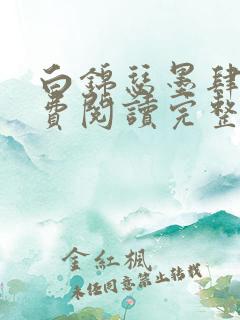 白錦瑟墨肆
費閱讀完整
金紅楓
未經同意禁止轉載